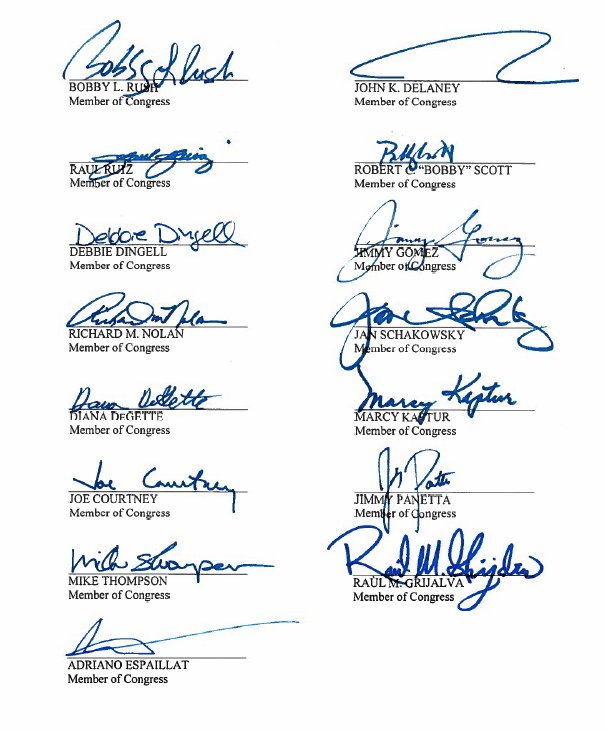 Bobby L Rush
BOBBY L. RUSH
Member of Congress
JOHN K. DELANEY
Member of Congress
Raul Ruiz
RAUL RUIZ
Member of Congress
ROBERT C. "BOBBY" SCOTT
Member of Congress
Debbie Dingell
DEBBIE DINGELL
Member of Congress
Jimmy Gomez
JIMMY GOMEZ
Member of Congress
Richard M Nolan
RICHARD M. NOLAN
Member of Congress
Jan Schakowsky
JAN SCHAKOWSKY
Member of Congress
Diana DeGette
DIANA DeGETTE
Member of Congress
Marcy Kaptur
MARCY KAPTUR
Member of Congress
Joe Courtney
JOE COURTNEY
Member of Congress
JIMMY PANETTA
Member of Congress
Mike Thompson
MIKE THOMPSON
Member of Congress
Raúl M. Grijalva
RAÚL M. GRIJALVA
Member of Congress
ADRIANO ESPAILLAT
Member of Congress